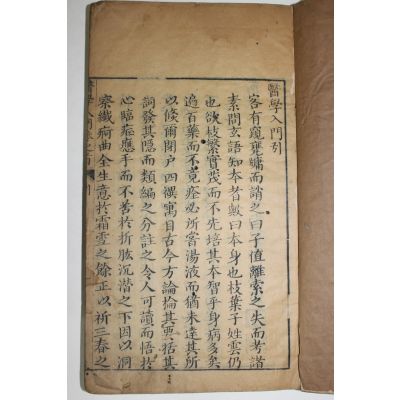 醫學入門引
客有窺甕牖而誚之曰子值離索之失而考諸
素問玄語知本者歟曰本身也枝葉子姓雲仍
也欲枝繁實茂而不先培其本智乎身病多矣
遍百藥而不竟痊必所畜湯液而猶未達其所
以倏爾閉戶四禩寓目古今方論掄其要括其
詞發其隱而類編之分註之令人可讀而悟於
心臨症應手而不苦於折肱沉潛之下因以洞
察纖痾曲全生意於霜雪之餘正以祈三春之